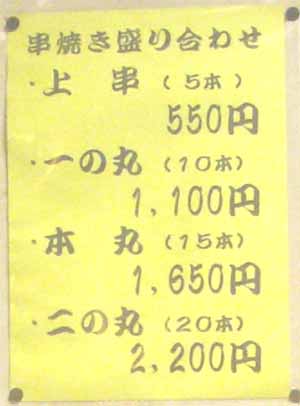 串焼き盛り合わせ
・上 串（5本）
550円
・一の丸（10本）
1,100円
・本 丸（15本）
1,650円
・二の丸（20本）
2,200円